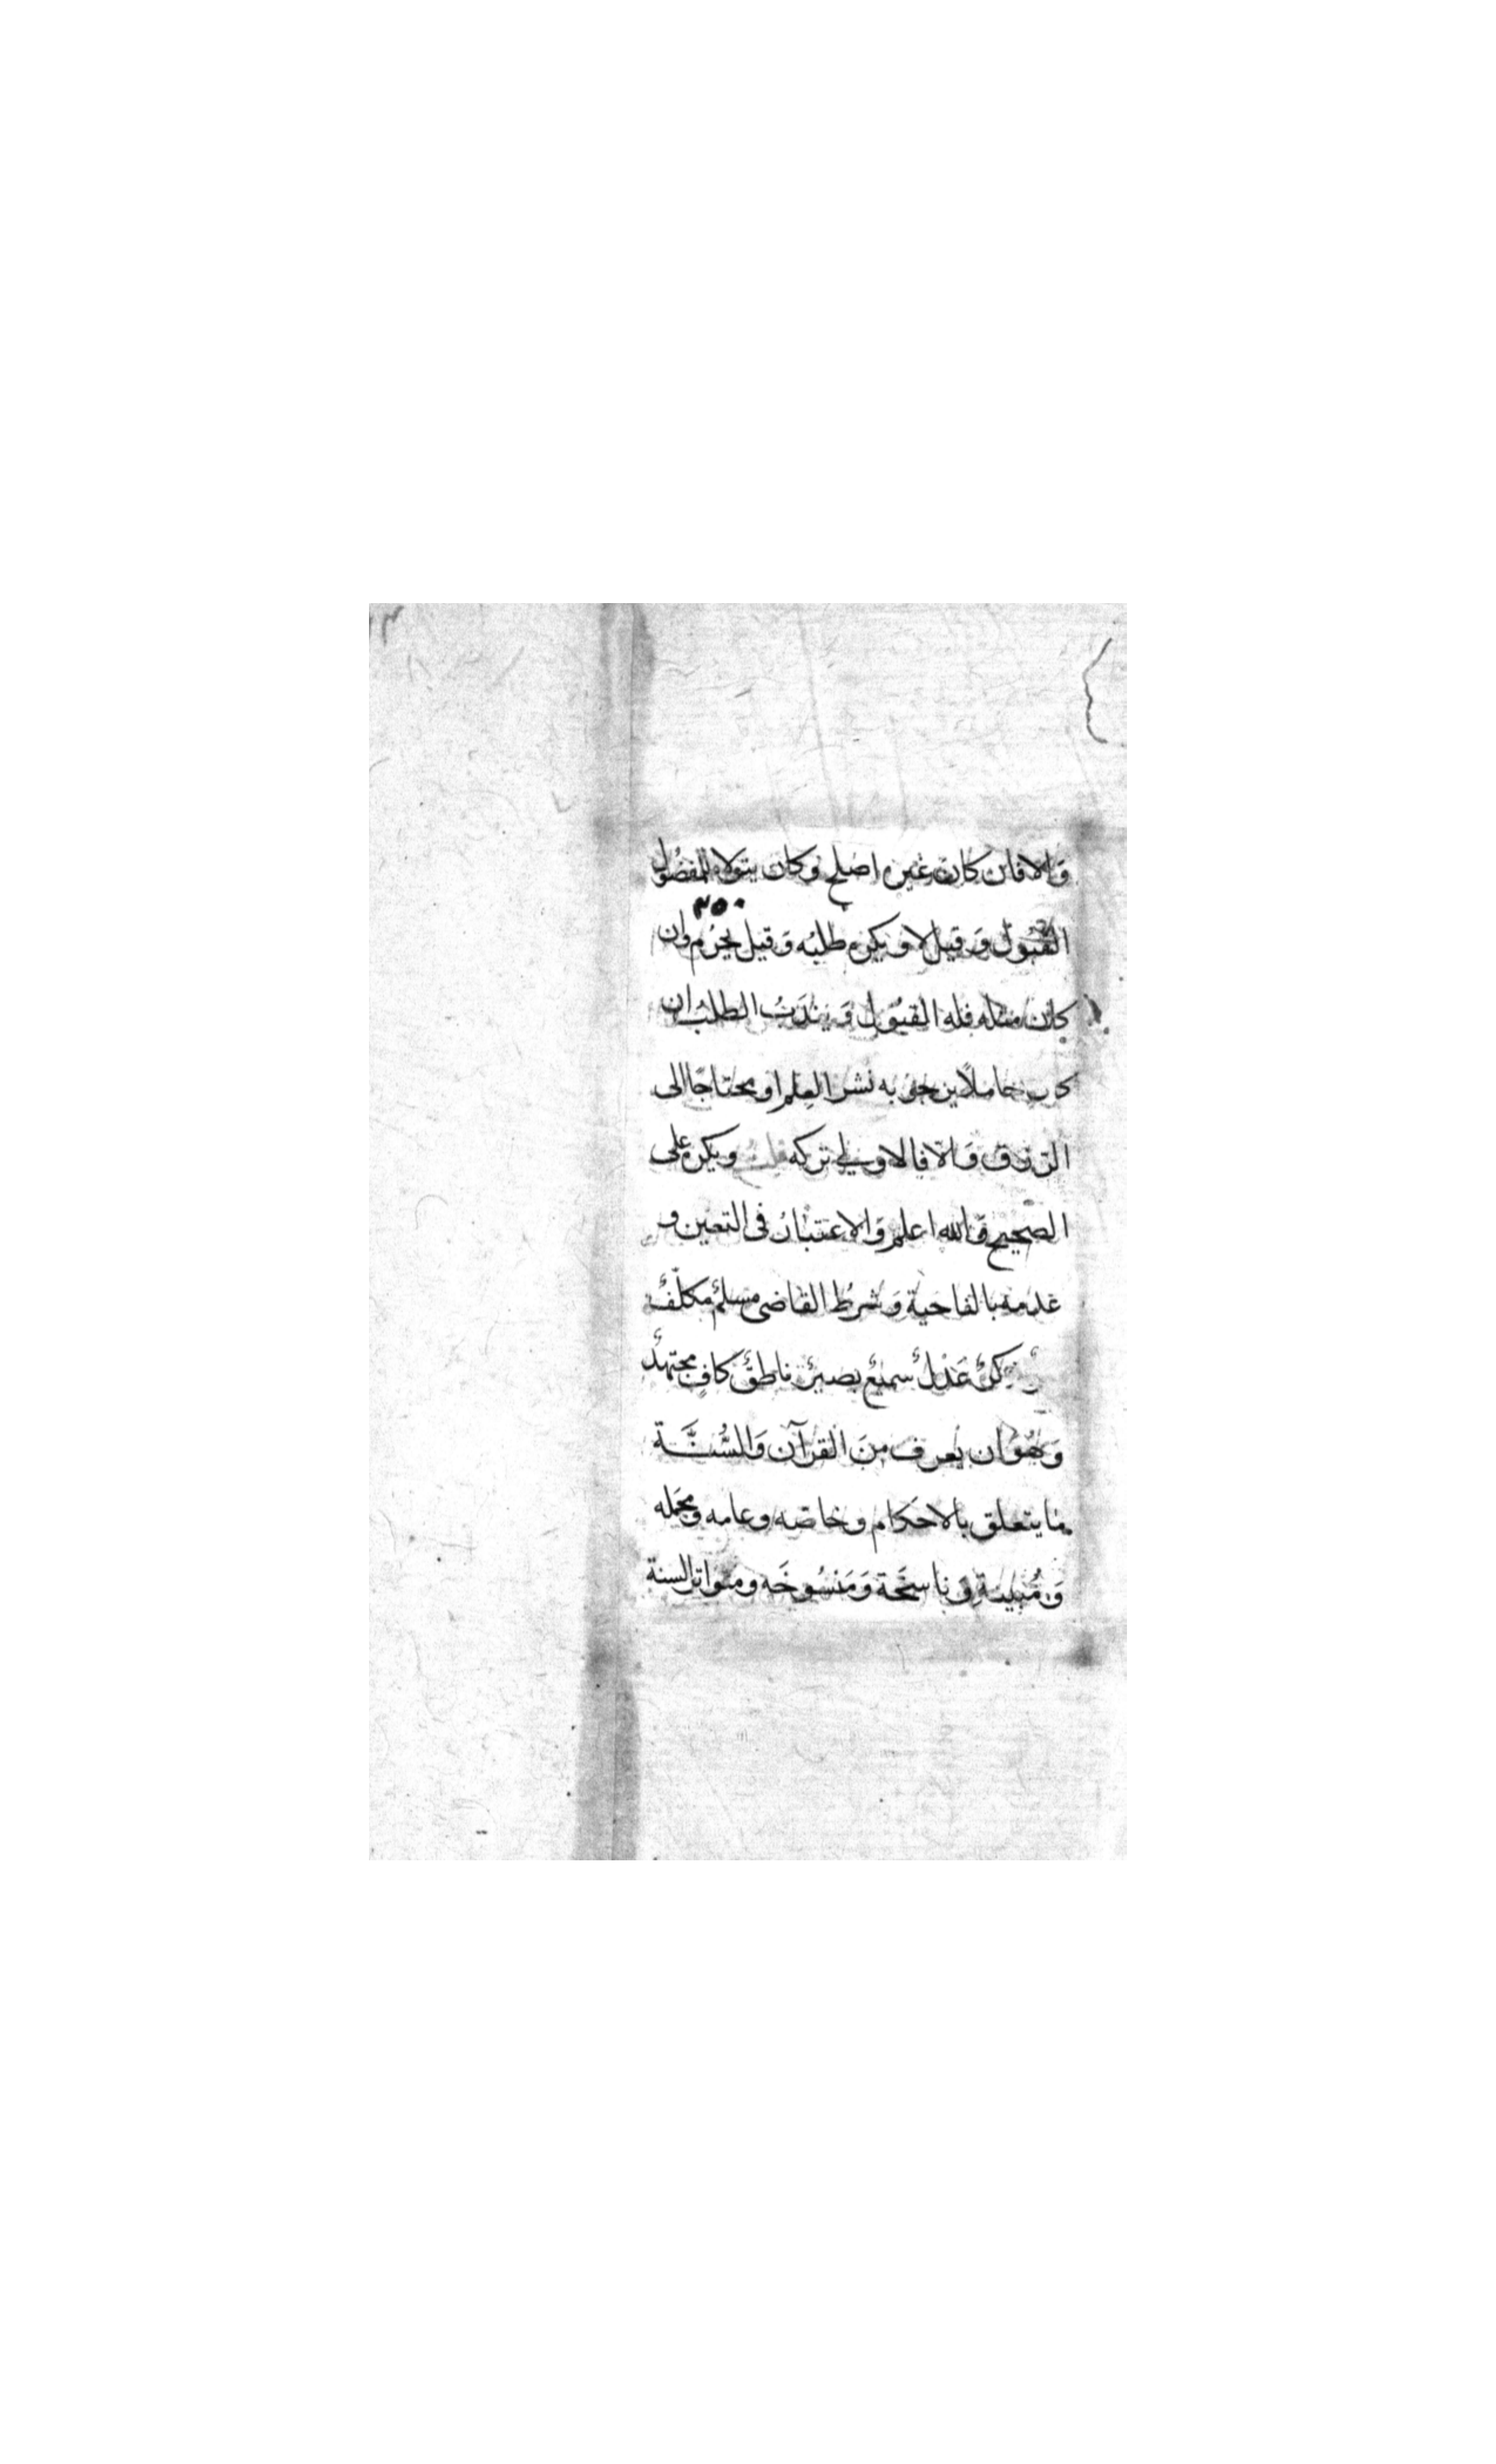 وَالا فان كان غيره اصلح وكان يتولاه المفضُول
٢٥٠
القبُول وَقيل لا ويكره طلبُه وَقيل يحرُم وان
كان مثله فله القبُول وَيندَبُ الطلبُ ان
كان خاملاً يرجو به نشر العِلم او محتاجًا الى
الرزق وَالا فالاولى تركه قلت ويكره على
الصحيح وَالله اعلم وَالاعتبارُ فى التعين و
عدمه بالناحية وَشرطُ القاضى مسلمٌ مكلّفٌ
حرٌ ذكرٌ عَدْلٌ سميعٌ بصيرٌ ناطقٌ كافٍ مجتهدٌ
وَهُوَ ان يعرف مِنَ القرآن وَالسُّنَّة
مَا يتعلق بالاحكام وخاصه وعامه ومجمله
وَمُبينه وَناسخَه وَمَنسُوخَه ومتواتر السنة